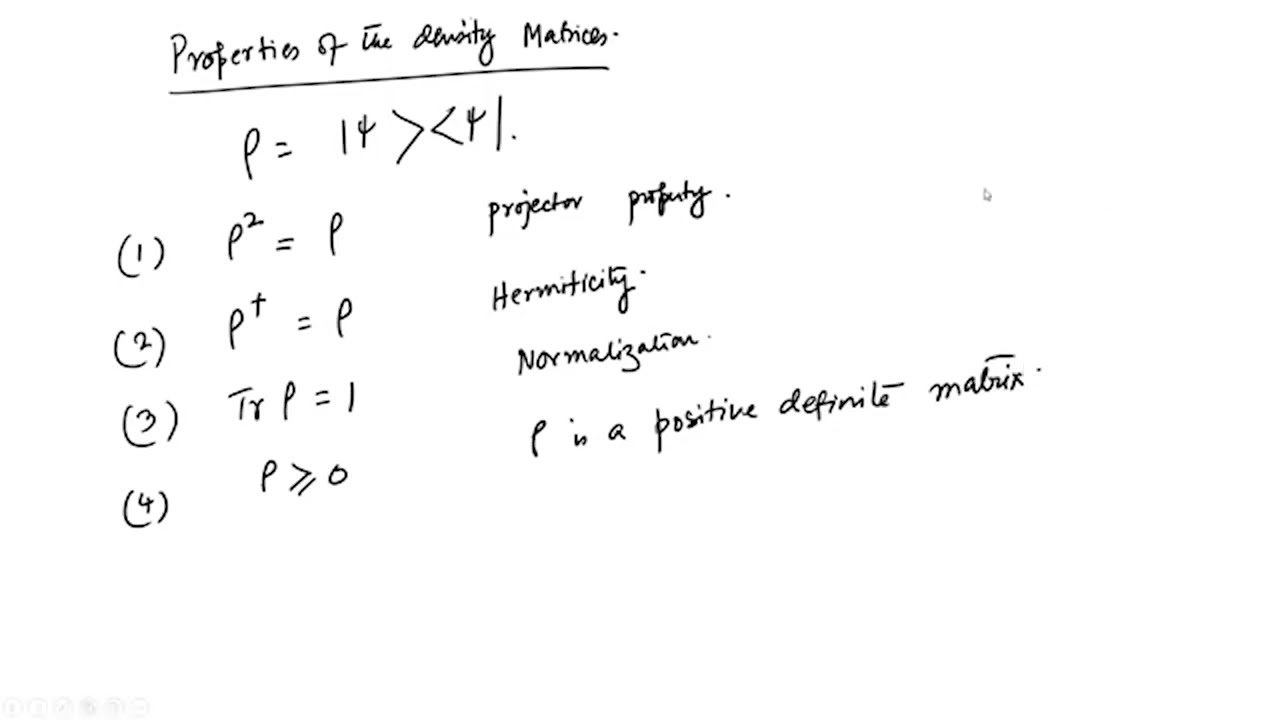 Properties of the density Matrices.
ρ = |ψ><ψ|.
(1) ρ² = ρ projector property.
(2) ρ† = ρ Hermiticity.
(3) Tr ρ = 1 Normalization.
(4) ρ ⩾ 0 ρ is a positive definite matrix.